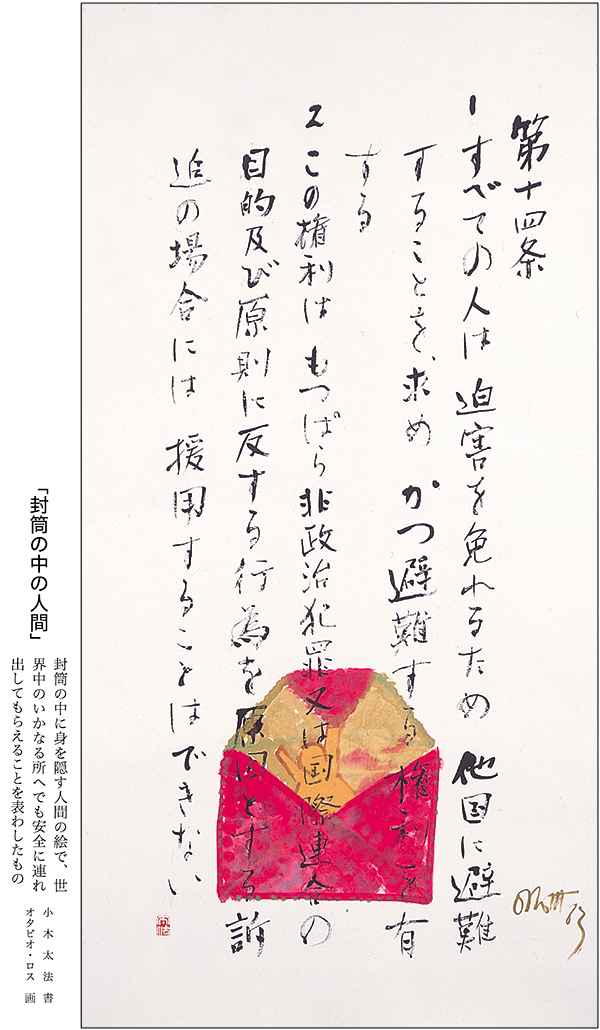 第十四条
1 すべての人は 迫害を免れるため 他国に避難
することを、求め かつ避難する権利を有
する
2 この権利は もっぱら非政治犯罪又は国際連合の
目的及び原則に反する行為を原因とする訴
追の場合には 援用することはできない
「封筒の中の人間」
封筒の中に身を隠す人間の絵で、世
界中のいかなる所へでも安全に連れ
出してもらえることを表わしたもの
小木太法 書
オタビオ・ロス 画